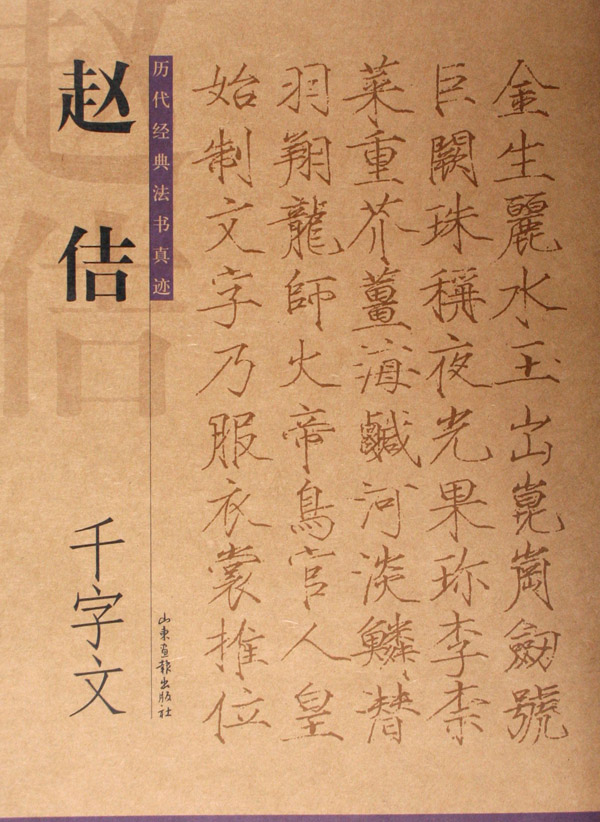 金生麗水玉出崑崗劔號
巨闕珠稱夜光果珎李柰
菜重芥薑海鹹河淡鱗潛
羽翔龍師火帝鳥官人皇
始制文字乃服衣裳推位
历代经典法书真迹
山東畫報出版社
赵佶
千字文